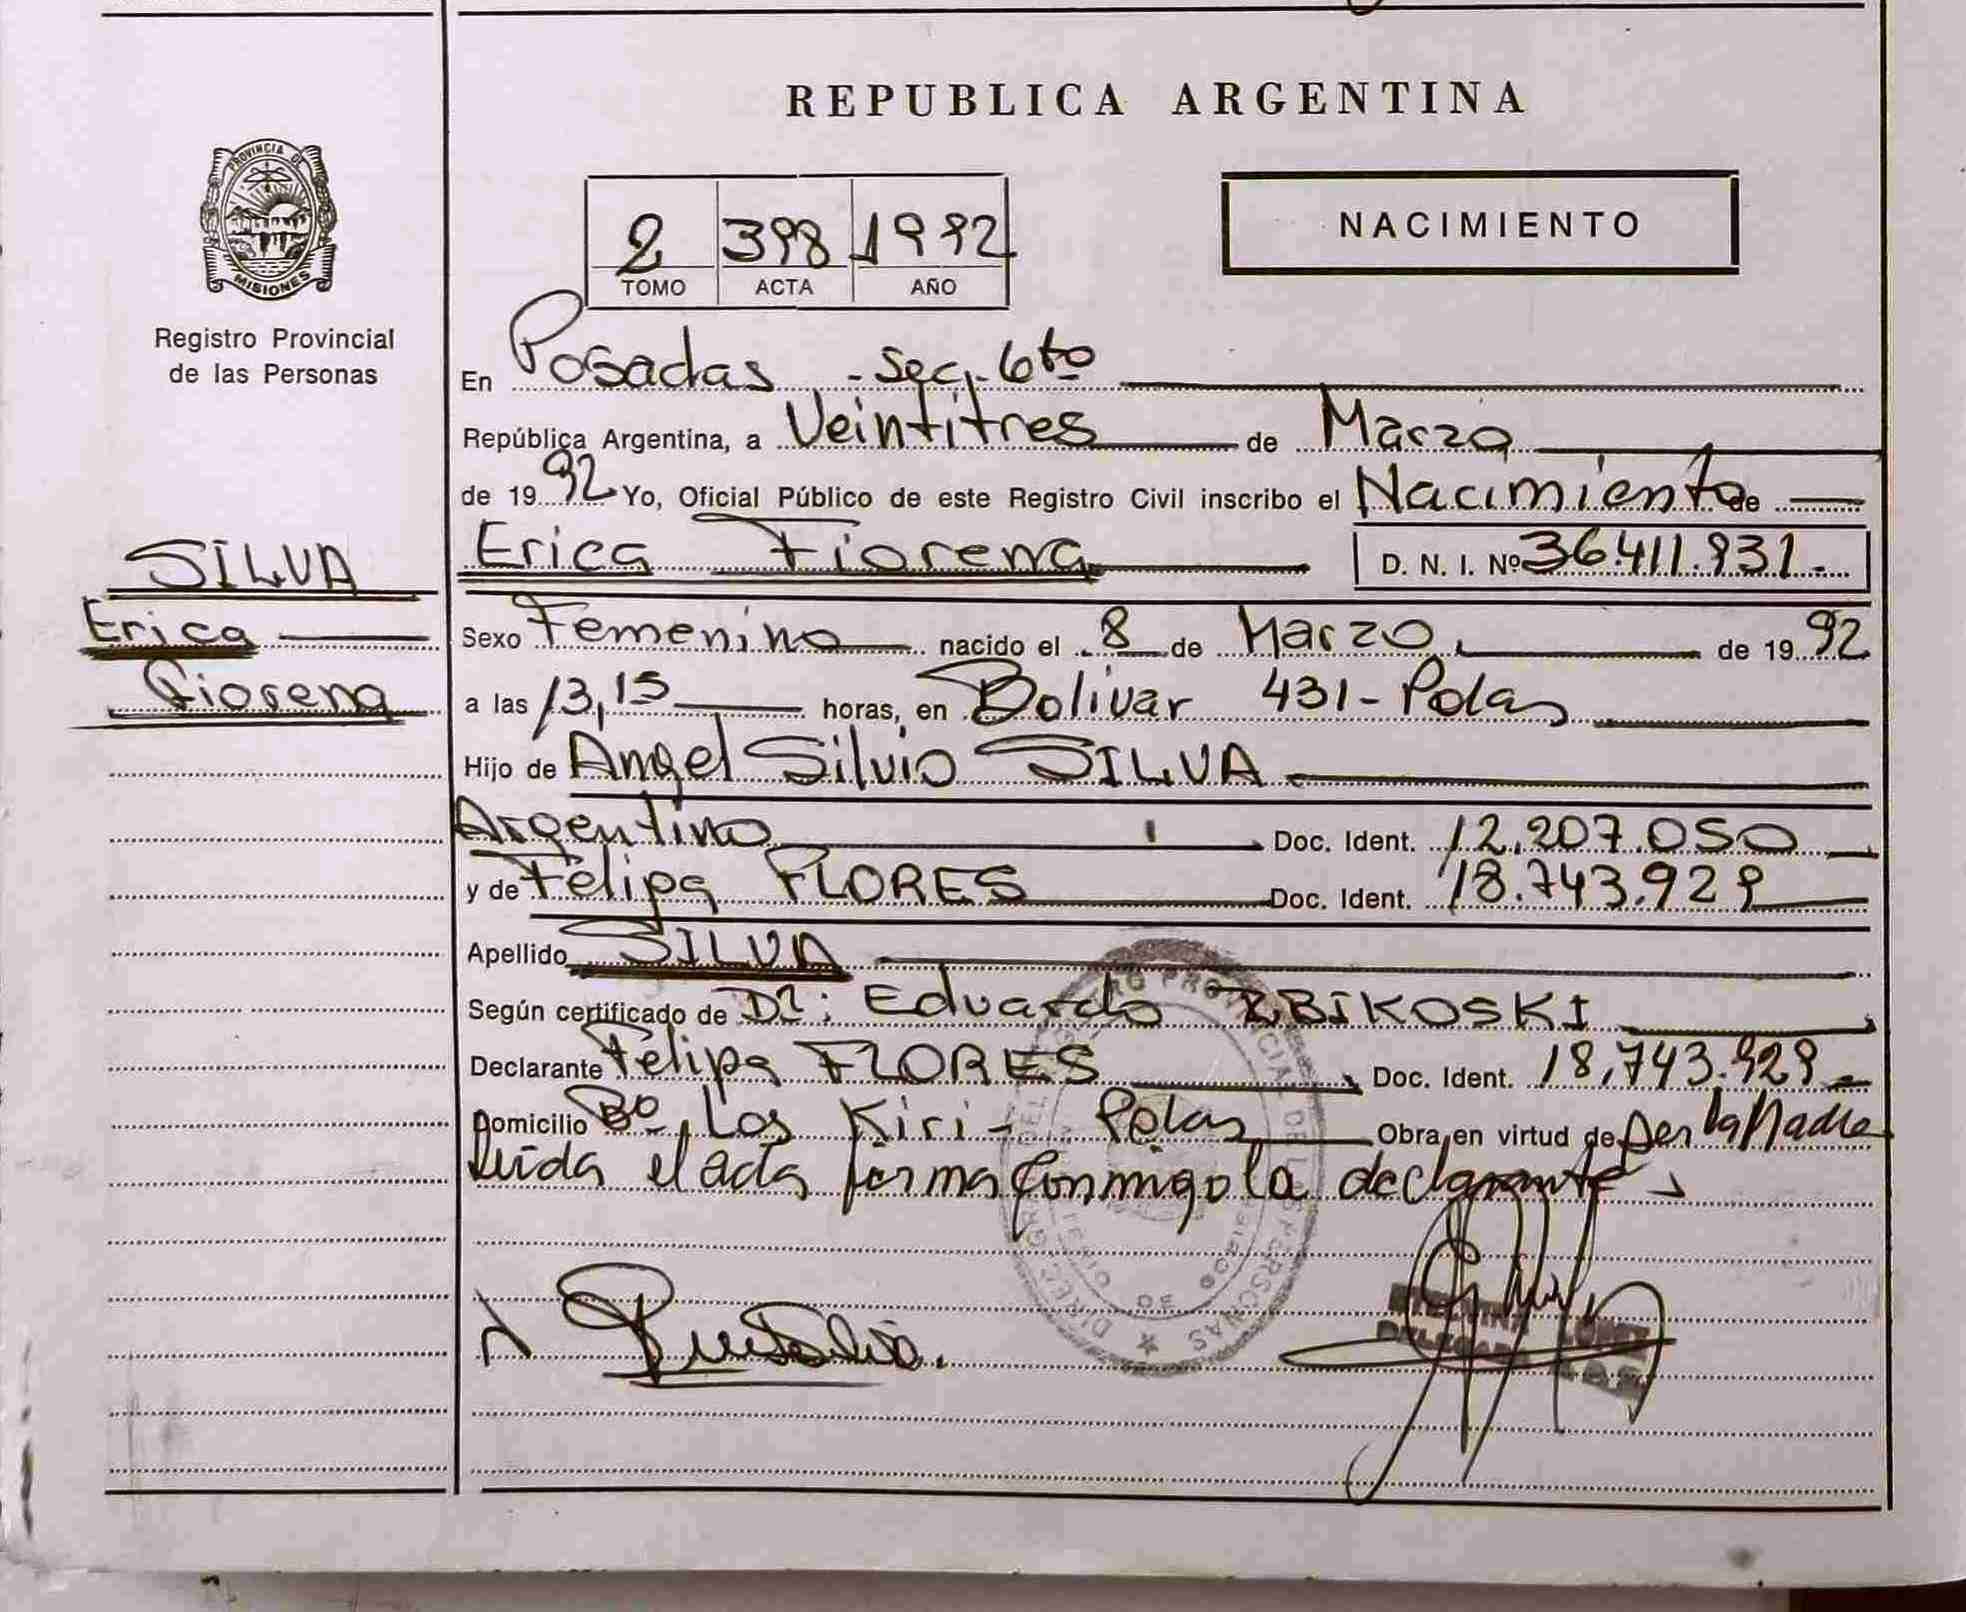 REPUBLICA ARGENTINA
PROVINCIA DE
MISIONES
Registro Provincial
de las Personas
2 398 1992
TOMO ACTA AÑO
NACIMIENTO
En Posadas - Sec. 6to
República Argentina, a Veintitres de Marzo
de 1992 Yo, Oficial Público de este Registro Civil inscribo el Nacimiento de
SILVA
Erica
Fiorena
Erica Fiorena D. N. I. Nº 36.411.931.-
Sexo Femenino nacido el 8 de Marzo de 1992
a las 13,15 horas, en Bolivar 431 - Pdas
Hijo de Angel Silvio SILVA
Argentino Doc. Ident. 12.207.050
y de Felipa FLORES Doc. Ident. 18.743.929
Apellido SILVA
Según certificado de Dr: Eduardo ZBIKOSKI
Declarante Felipa FLORES Doc. Ident. 18.743.929
Domicilio Bº Los Kiri - Pdas Obra en virtud de ser la Madre
Leida el acta firma conmigo la declarante